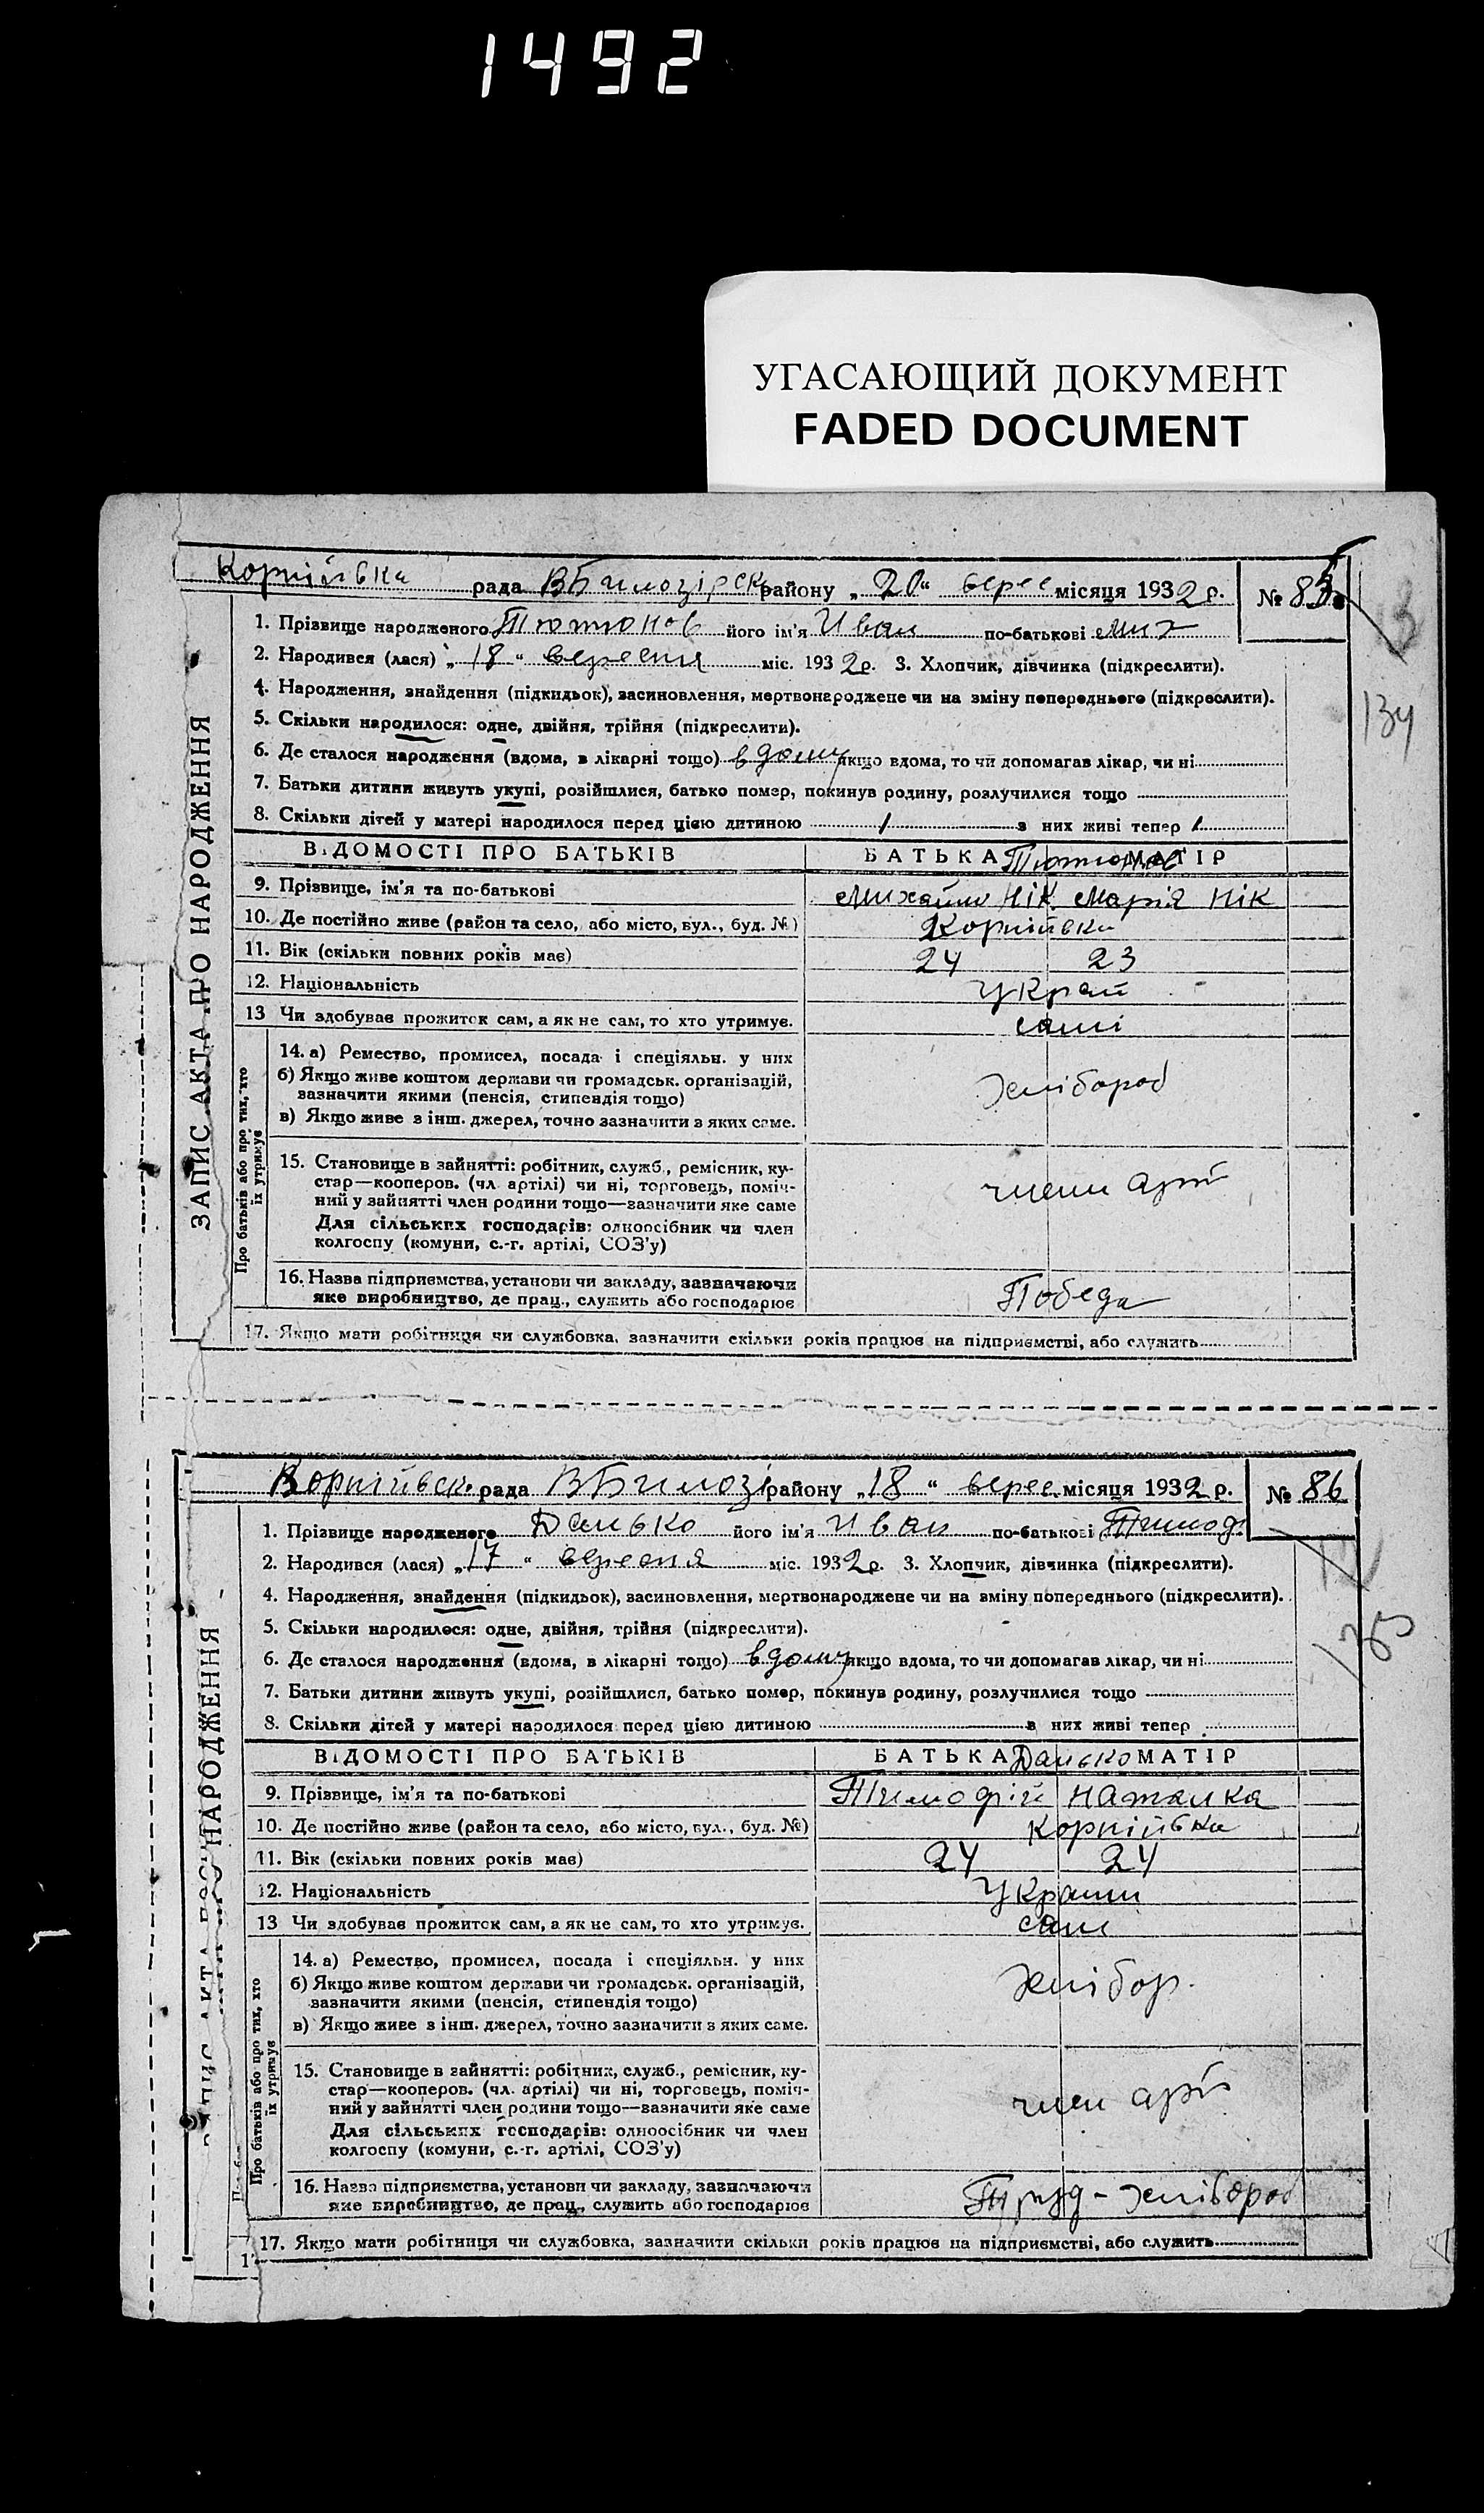 1492
УГАСАЮЩИЙ ДОКУМЕНТ
FADED DOCUMENT
Корнійвка рада ВБилозірськ району „20“ верес місяця 1932 р. № 85
ЗАПИС АКТА ПРО НАРОДЖЕННЯ
1. Прізвище народженого Тютюнов його ім'я Иван по-батькові Мих
2. Народився (лася) „18“ вересня міс. 1932 р. 3. Хлопчик, дівчинка (підкреслити).
4. Народження, знайдення (підкидьок), засиновлення, мертвонароджене чи на зміну попереднього (підкреслити).
134
5. Скільки народилося: одне, двійня, трійня (підкреслити).
6. Де сталося народження (вдома, в лікарні тощо) в дому якщо вдома, то чи допомагав лікар, чи ні
7. Батьки дитини живуть укупі, розійшлися, батько помер, покинув родину, розлучилися тощо
8. Скільки дітей у матері народилося перед цією дитиною 1 з них живі тепер 1
ВІДОМОСТІ ПРО БАТЬКІВ БАТЬКА Тютюнов МАТІР
9. Прізвище, ім'я та по-батькові Михайло Нік. Марія Нік
10. Де постійно живе (район та село, або місто, вул., буд. №) Корнійвка
11. Вік (скільки повних років має) 24 23
12. Національність Украй
13 Чи здобуває прожиток сам, а як не сам, то хто утримує. самі
Про батьків або про тих, хто їх утримує
14. а) Ремество, промисел, посада і спеціяльн. у них
б) Якщо живе коштом держави чи громадськ. організацій,
зазначити якими (пенсія, стипендія тощо)
в) Якщо живе з інш. джерел, точно зазначити з яких саме.
Хлібороб
15. Становище в зайнятті: робітник, служб., ремісник, ку-
стар—кооперов. (чл. артілі) чи ні, торговець, поміч-
ний у зайнятті член родини тощо—зазначити яке саме
Для сільських господарів: одноосібник чи член
колгоспу (комуни, с.-г. артілі, СОЗ'у)
члени арт
16. Назва підприємства, установи чи закладу, зазначаючи
яке виробництво, де прац., служить або господарює
Победа
17. Якщо мати робітниця чи службовка, зазначити скільки років працює на підприємстві, або служить
Корнійвск. рада ВБилозі району „18“ верес. місяця 1932 р. № 86
ЗАПИС АКТА ПРО НАРОДЖЕННЯ
1. Прізвище народженого Данько його ім'я Иван по-батькові Тимоф
2. Народився (лася) „17“ вересня міс. 1932 р. 3. Хлопчик, дівчинка (підкреслити).
4. Народження, знайдення (підкидьок), засиновлення, мертвонароджене чи на зміну попереднього (підкреслити).
135
5. Скільки народилося: одне, двійня, трійня (підкреслити).
6. Де сталося народження (вдома, в лікарні тощо) в дому якщо вдома, то чи допомагав лікар, чи ні
7. Батьки дитини живуть укупі, розійшлися, батько помер, покинув родину, розлучилися тощо
8. Скільки дітей у матері народилося перед цією дитиною з них живі тепер
ВІДОМОСТІ ПРО БАТЬКІВ БАТЬКА Данько МАТІР
9. Прізвище, ім'я та по-батькові Тимофій Наталка
10. Де постійно живе (район та село, або місто, вул., буд. №) Корнійвка
11. Вік (скільки повних років має) 24 24
12. Національність Україн
13 Чи здобуває прожиток сам, а як не сам, то хто утримує. самі
Про батьків або про тих, хто їх утримує
14. а) Ремество, промисел, посада і спеціяльн. у них
б) Якщо живе коштом держави чи громадськ. організацій,
зазначити якими (пенсія, стипендія тощо)
в) Якщо живе з інш. джерел, точно зазначити з яких саме.
Хлібор.
15. Становище в зайнятті: робітник, служб., ремісник, ку-
стар—кооперов. (чл. артілі) чи ні, торговець, поміч-
ний у зайнятті член родини тощо—зазначити яке саме
Для сільських господарів: одноосібник чи член
колгоспу (комуни, с.-г. артілі, СОЗ'у)
член арт
16. Назва підприємства, установи чи закладу, зазначаючи
яке виробництво, де прац., служить або господарює
Труд - хлібороб
17. Якщо мати робітниця чи службовка, зазначити скільки років працює на підприємстві, або служить